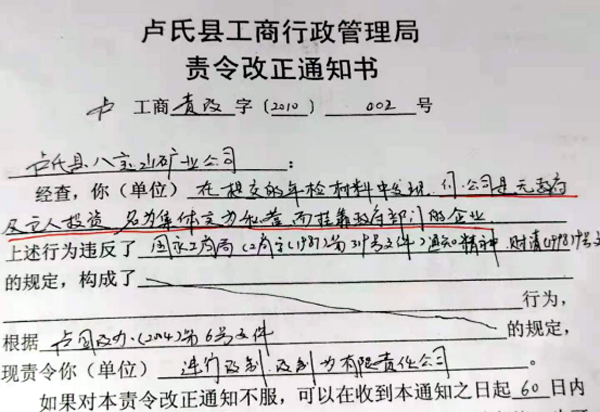 卢氏县工商行政管理局
责令改正通知书
卢 工商 责改 字 (2010) 002 号
卢氏县八宝山矿业公司 :
经查,你(单位) 在提交的年检材料中发现, 你公司是无政府
及主人投资, 名为集体实为私营, 而挂靠政府部门的企业
上述行为违反了 国家工商局(工商字(1987)第319号文件)通知精神
的规定,构成了
行为,
根据 (2004)第6号文件 的规定,
现责令你(单位) 进行改制,改制为有限责任公司 。
如果对本责令改正通知不服,可以在收到本通知之日起 60 日内